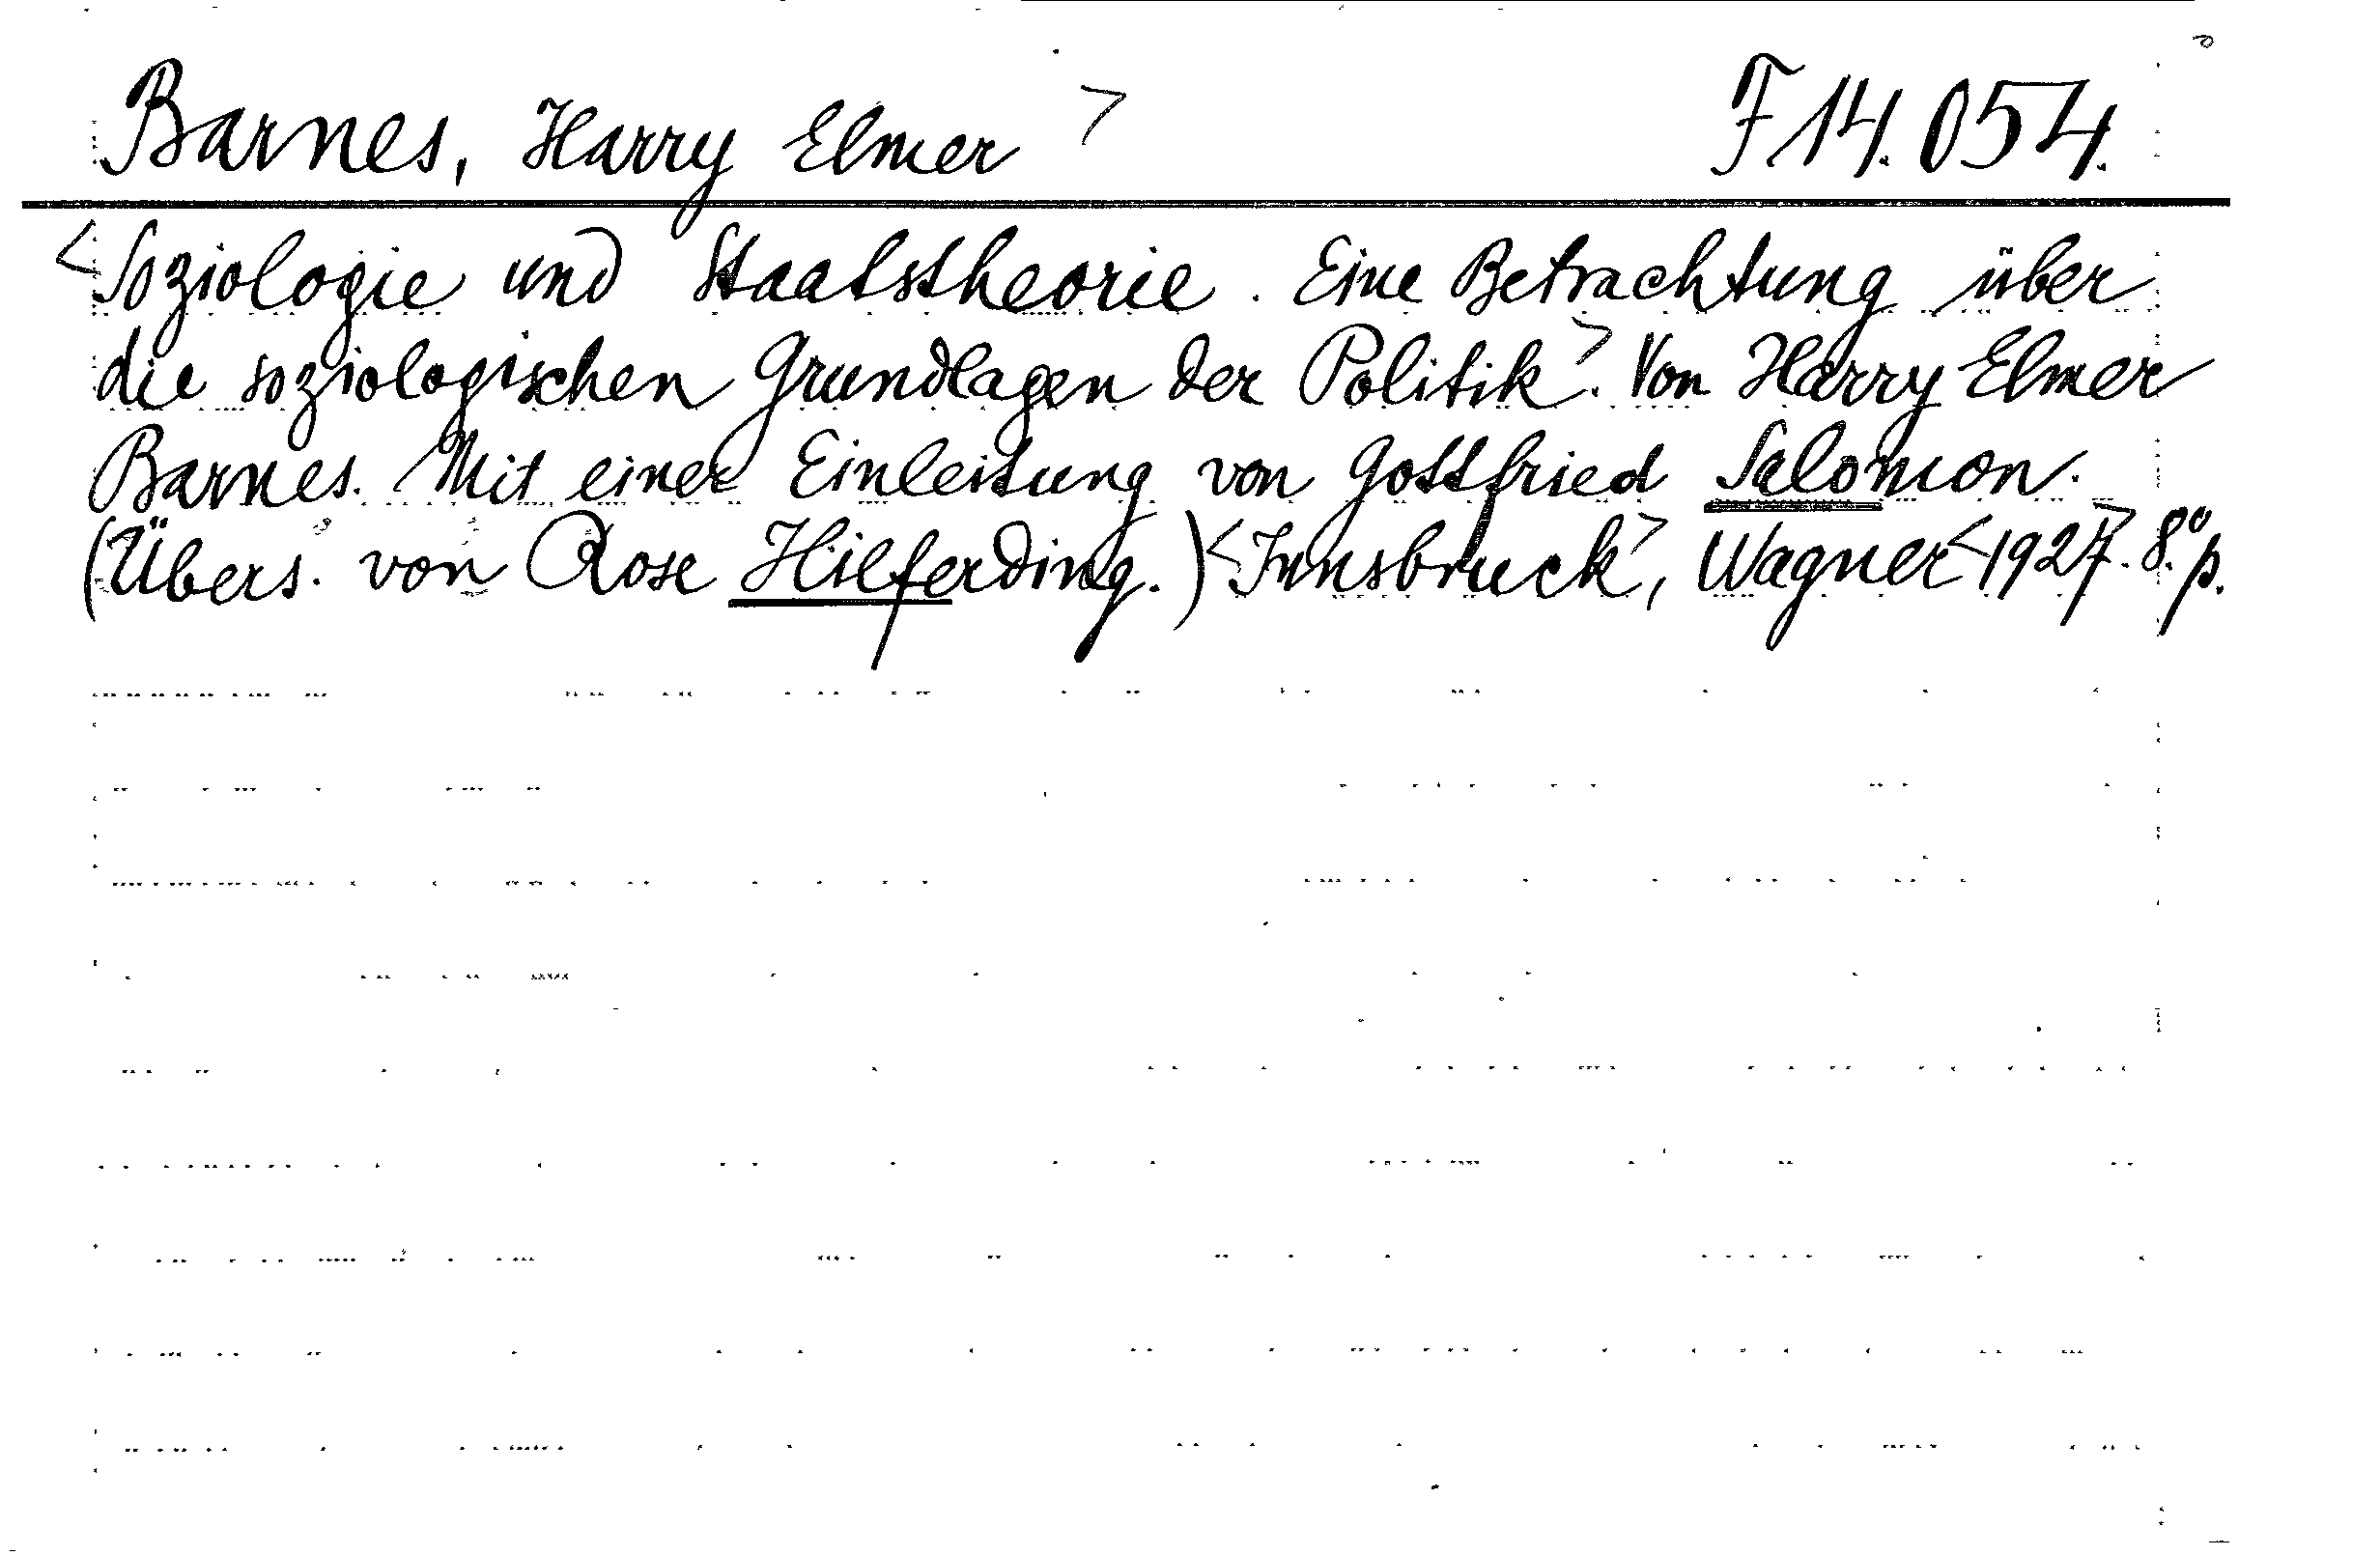 Barnes, Harry Elmer > F 14.054.
<Soziologie und Staatstheorie. Eine Betrachtung über
die soziologischen Grundlagen der Politik>. Von Harry Elmer
Barnes. Mit einer Einleitung von Gottfried Salomon.
(Übers. von Rose Hilferding.) <Innsbruck>, Wagner <1927>. 8° p.